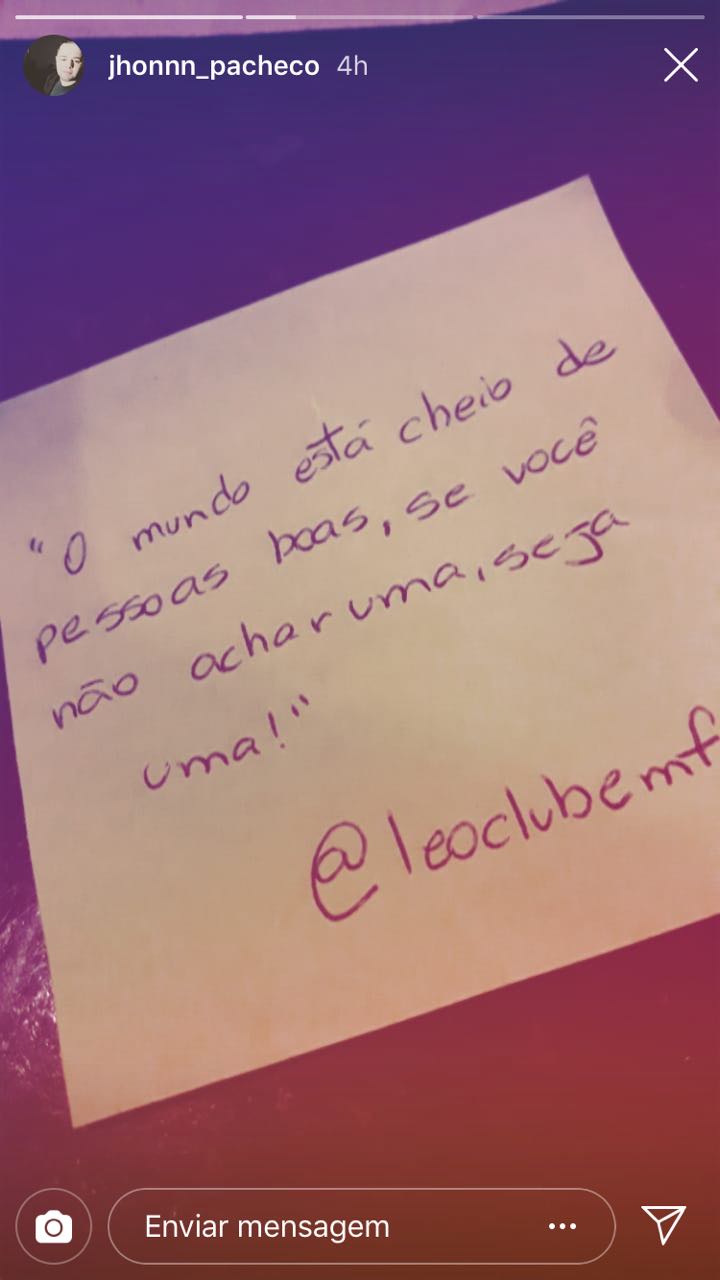 jhonnn_pacheco 4h
"O mundo está cheio de
pessoas boas, se você
não achar uma, seja
uma!"
@leoclubemf
Enviar mensagem